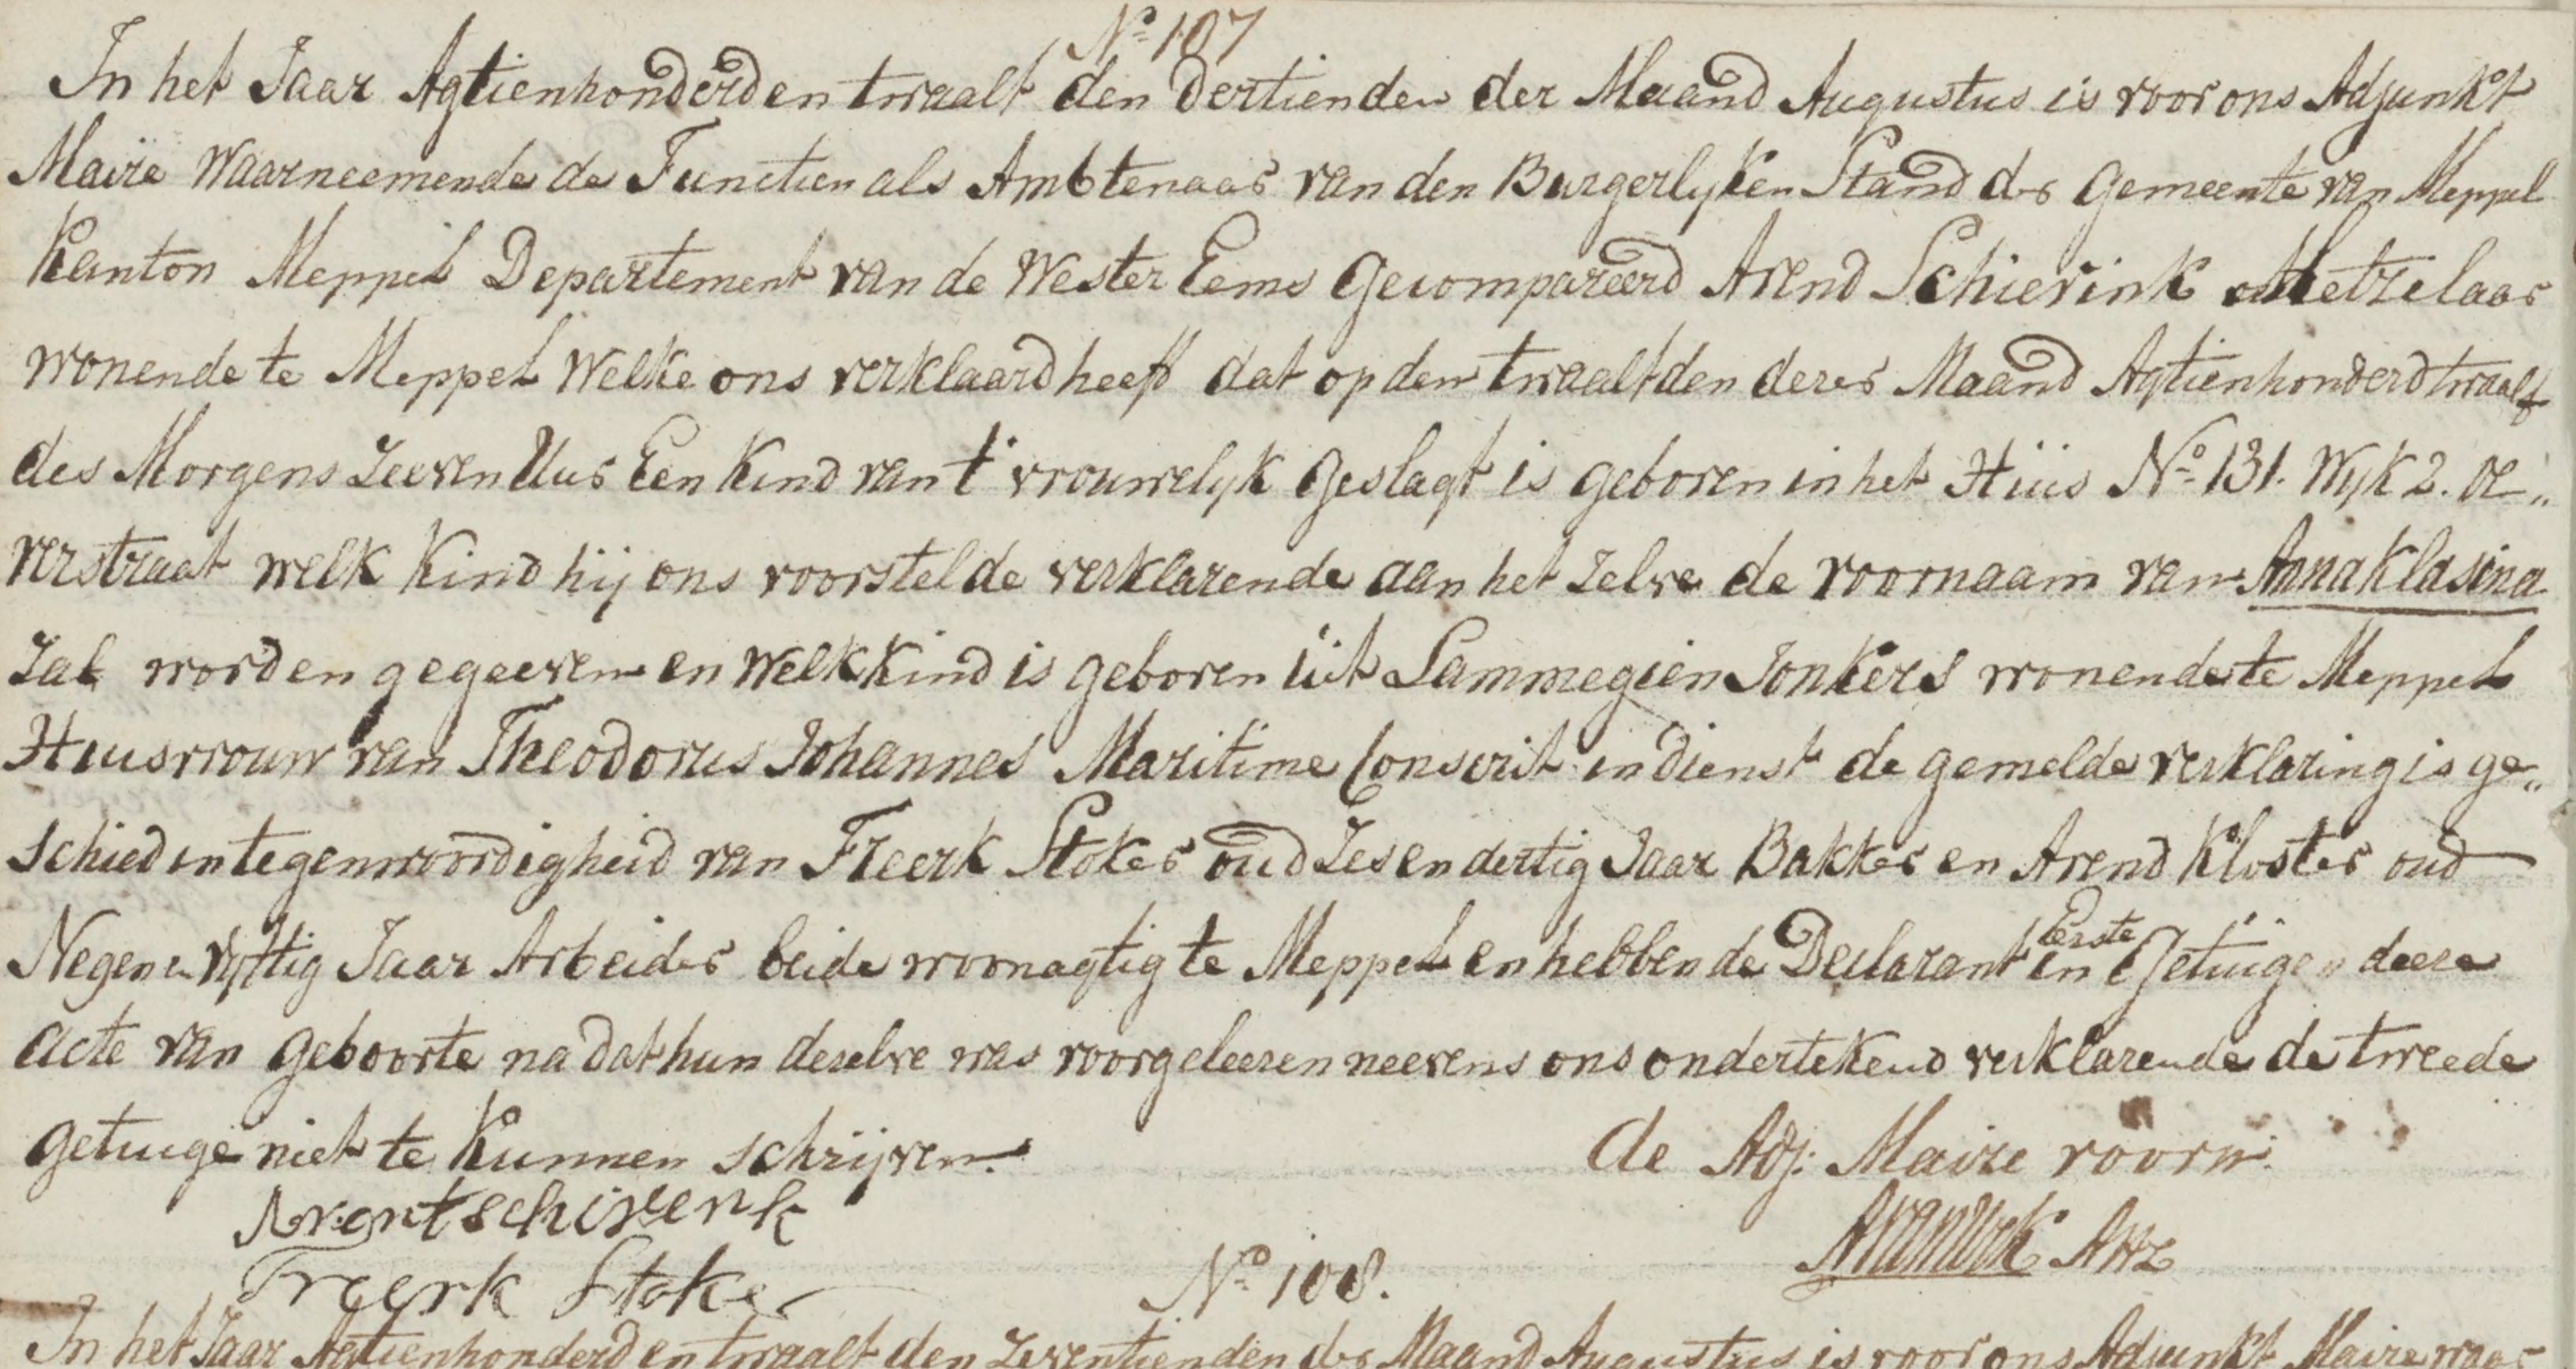 No 107
In het Jaar Agtienhonderd en twaalf den dertienden der Maand Augustus is voor ons Adjunkt
Maire Waarneemende de Functien als Ambtenaar van den Burgerlyken Stand der Gemeente van Meppel
Kanton Meppel Departement van de Wester Eems Gecompareerd Arend Schierink Metzelaar
wonende te Meppel Welke ons verklaard heeft dat op den twaalfden dezer Maand Agtienhonderd twaalf
des Morgens Zeeven Uur Een Kind van t vrouwelyk Geslagt is geboren in het Huis No 131. Wyk 2. Oe„
verstraat welk Kind hij ons voorstelde verklarende aan het zelve de voornaam van Anna Klasina
Zal worden gegeeven en Welk Kind is geboren uit Lammegien Jonkers wonende te Meppel
Huisvrouw van Theodorus Johannes Maritime Conscrit in dienst de gemelde verklaring is ge„
schied in tegenwoordigheid van Freerk Stoker oud Zes en dertig Jaar Bakker en Arend Kloster oud
Negen en Vyftig Jaar Arbeider beide woonagtig te Meppel en hebben de Declarant en Eerste Getuige deeze
acte van geboorte na dat hun dezelve was voorgeleezen neevens ons ondertekend verklarende de tweede
getuige niet te kunnen schrijven.
de Adj: Maire voorn:
Arent schirenk
Freerk Stoker
No 108.
In het Jaar Agtienhonderd en twaalf den Zeventienden der Maand Augustus is voor ons Adjunkt Maire waar-